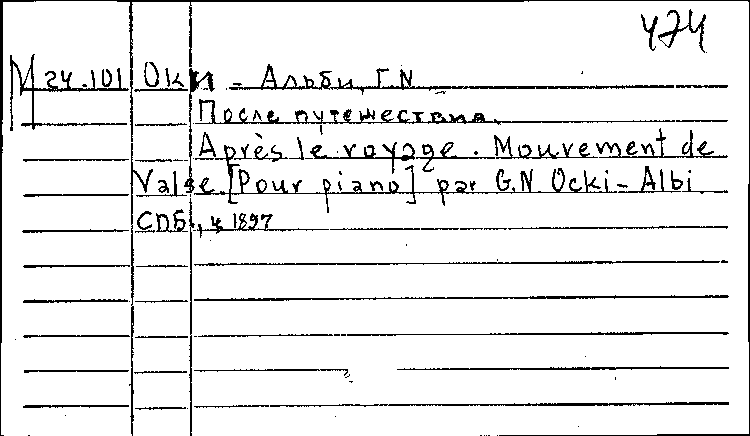 474
М 24.101 Оки - Альби, Г.N.
После путешествия.
Après le voyage. Mouvement de
Valse. [Pour piano] par G.N Ocki-Albi.
СПб., ц 1897